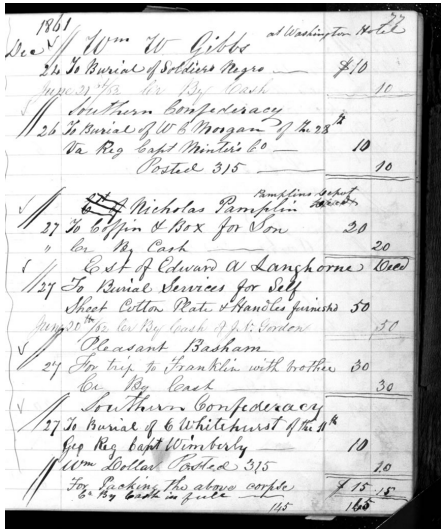 77
1861 at Washington Hotel
Dec Wm W Gibbs
24 To Burial of Soldiers Negro — $10
June 21st/62 Cr By Cash 10
Southern Confederacy
26 To Burial of W C Morgan of the 28th
Va Reg Capt Minters Co — 10
Posted 315 — 10
Pamplins Depot
Nicholas Pamplin
27 To Coffin & Box for Son 20
" Cr By Cash — 20
Est of Edward A Langhorne Decd
27 To Burial Services for Self
Sheet Cotton Plate & Handles furnishd 50
June 20th/62 Cr By Cash of J. Gordon 50
Pleasant Basham
27 For trip to Franklin with brother 30
Cr By Cash — 30
Southern Confederacy
27 To Burial of C Whitehurst of the 11th
Geo Reg Capt Wimberly — 10
Wm Dollar Posted 315 10
For Packing the above corpse $15
Cr By Cash in full — 15
165 165